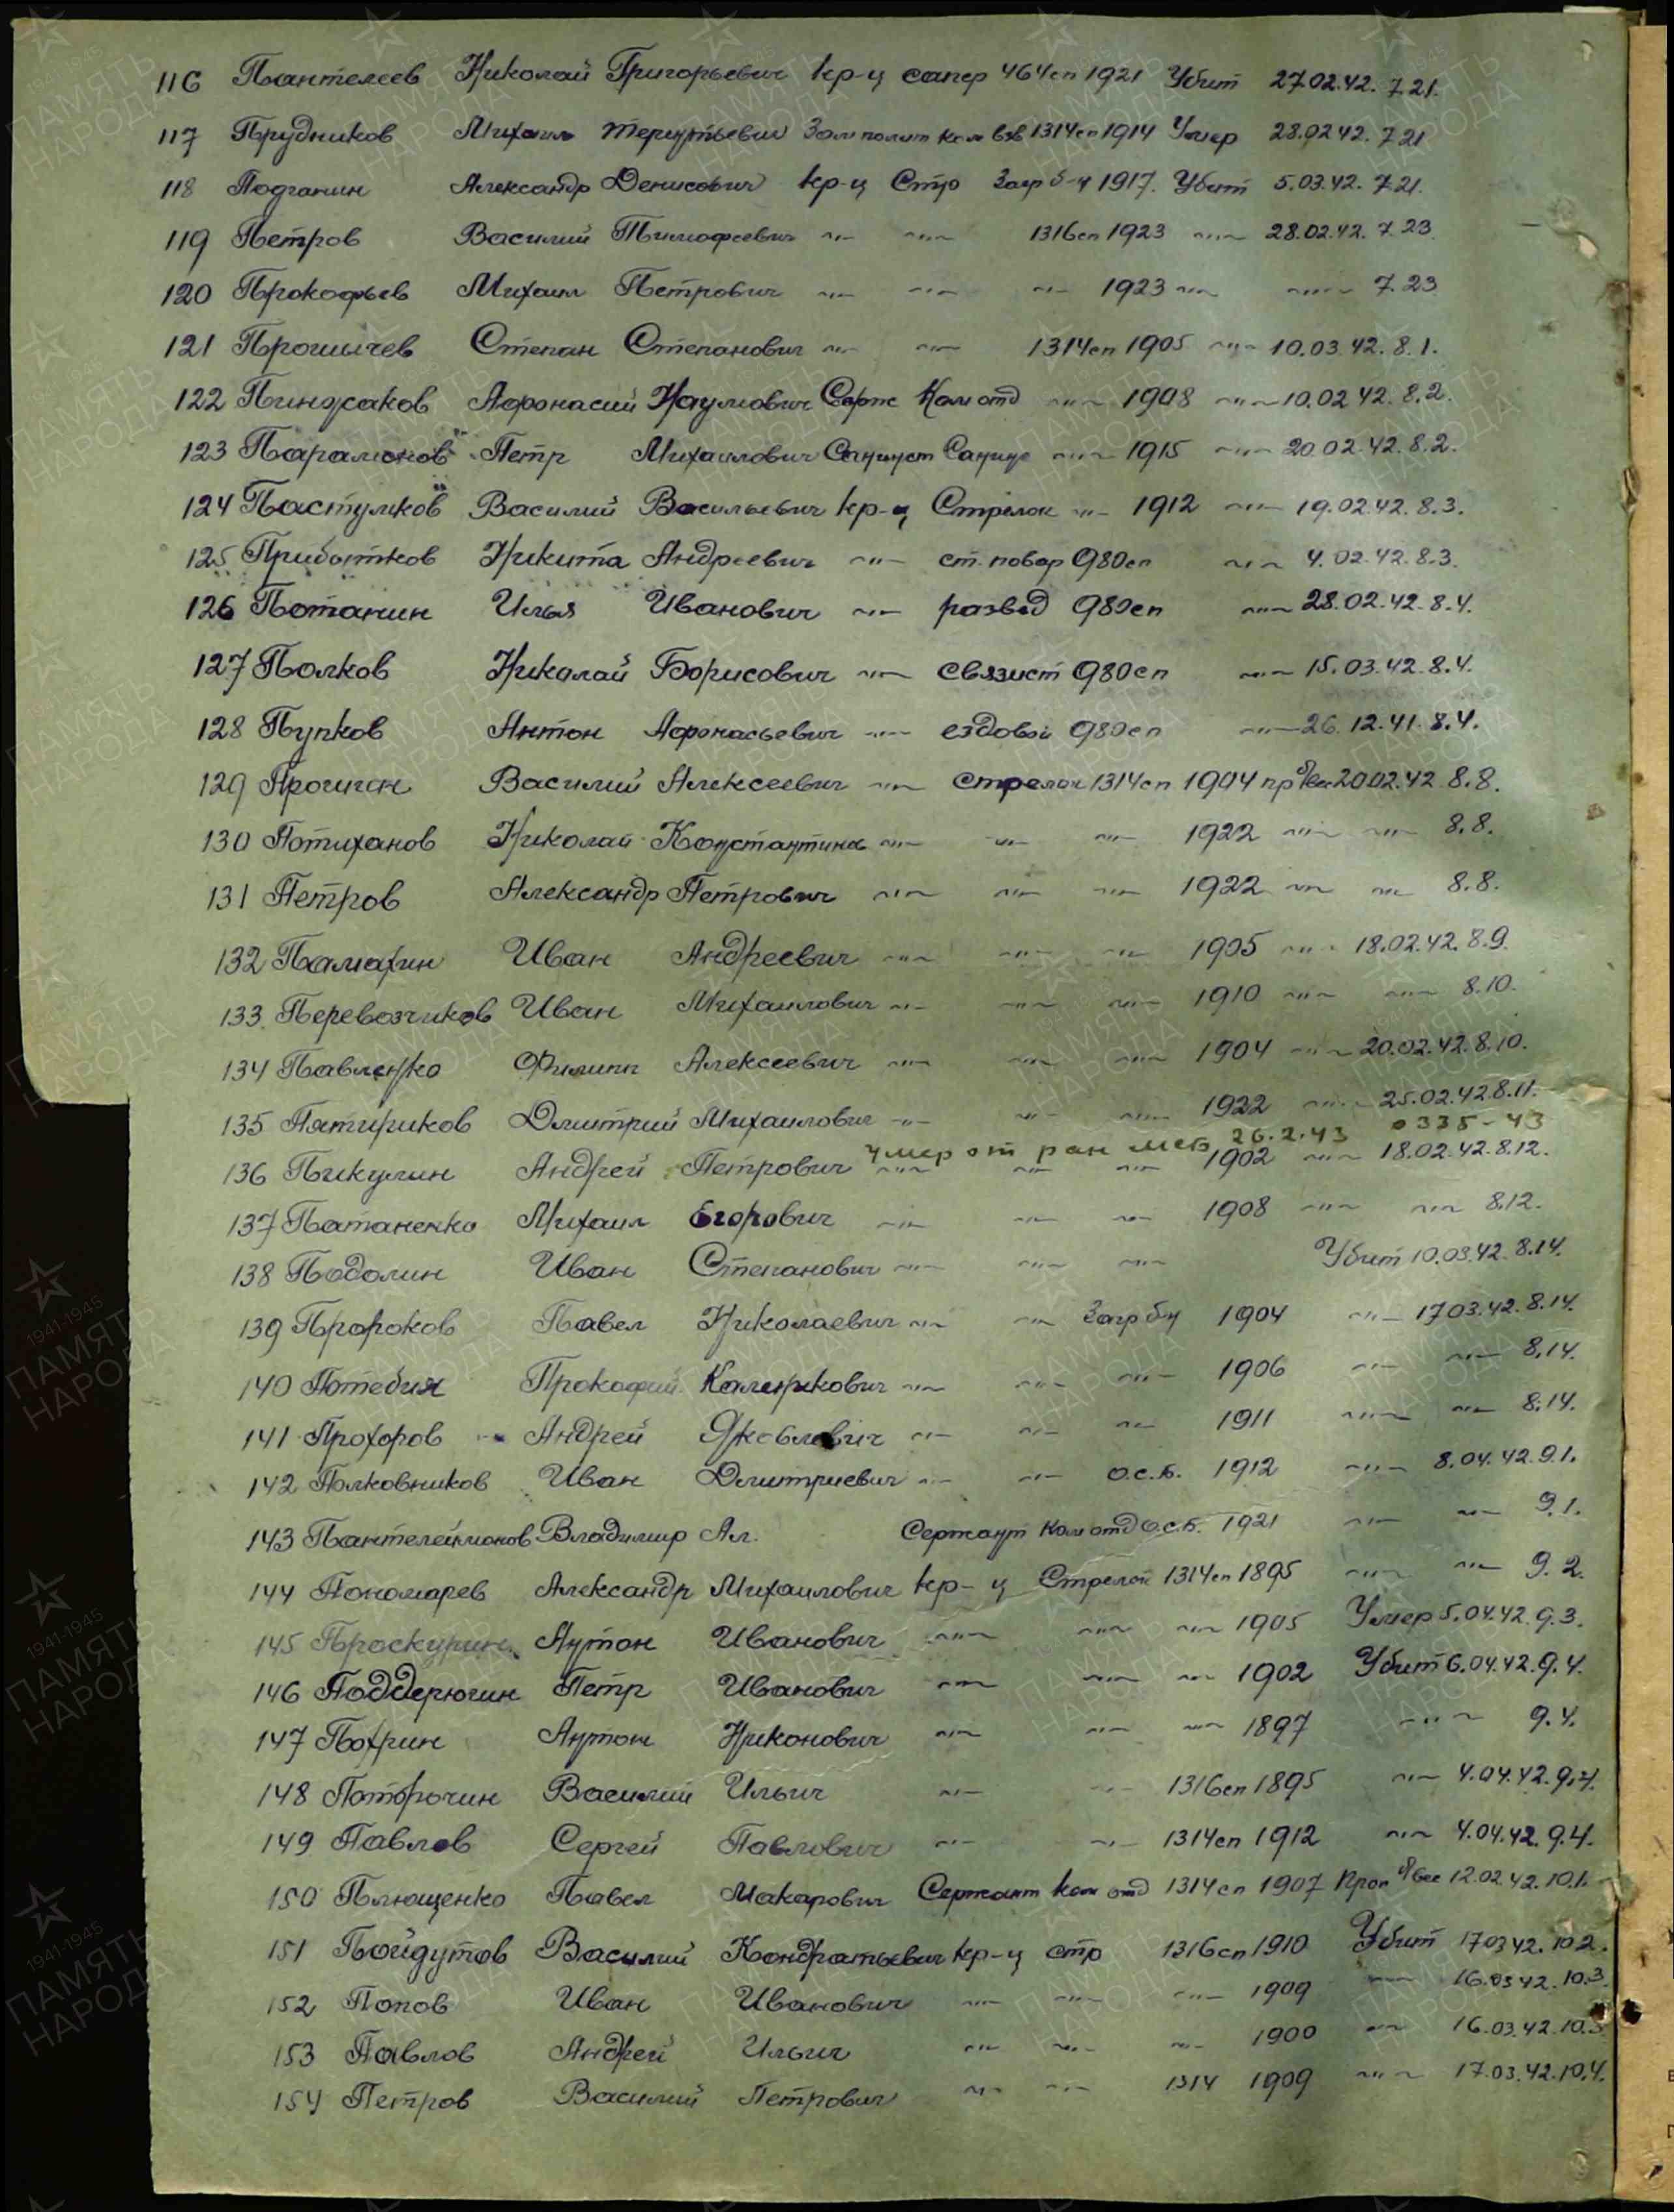 116 Пантелеев Николай Григорьевич кр-ц сапер 464сп 1921 Убит 27.02.42. 7.21.
117 Прудников Михаил Терентьевич Зам полит ком взв 1314сп 1914 Умер 28.02.42. 7.21
118 Подганин Александр Денисович кр-ц Стр Загр б-н 1917. Убит 5.03.42. 7.21.
119 Петров Василий Тимофеевич -"- -"- 1316сп 1923 -"- 28.02.42. 7.23.
120 Прокофьев Михаил Петрович -"- -"- -"- 1923 -"- -"- 7.23
121 Прошичев Степан Степанович -"- -"- 1314сп 1905 -"- 10.03.42. 8.1.
122 Пинджаков Афонасий Наумович Серж Ком отд -"- 1908 -"- 10.02.42. 8.2.
123 Парамонов Петр Михайлович Санинст -"- 1915 -"- 20.02.42. 8.2.
124 Пастушков Василий Васильевич кр-ц Стрелок -"- 1912 -"- 19.02.42. 8.3.
125 Прибытков Никита Андреевич -"- ст. повар 980сп -"- 4.02.42. 8.3.
126 Потанин Илья Иванович -"- развед 980сп -"- 28.02.42. 8.4.
127 Полков Николай Борисович -"- связист 980сп -"- 15.03.42. 8.4.
128 Пупков Антон Афонасьевич -"- ездовой 980сп -"- 26.12.41. 8.4.
129 Прочиган Василий Алексеевич -"- стрелок 1314сп 1904 пр б/вес 20.02.42 8.8.
130 Потиханов Николай Константинов -"- -"- -"- 1922 -"- -"- 8.8.
131 Петров Александр Петрович -"- -"- -"- 1922 -"- -"- 8.8.
132 Памахин Иван Андреевич -"- -"- -"- 1905 -"- 18.02.42. 8.9.
133. Перевозчиков Иван Михайлович -"- -"- -"- 1910 -"- -"- 8.10.
134 Павленко Филипп Алексеевич -"- -"- -"- 1904 -"- 20.02.42. 8.10.
135 Пятириков Дмитрий Михайлович -"- -"- -"- 1922 -"- 25.02.42 8.11.
умер от ран мсб 26.2.43 0335-43
136 Пикулин Андрей Петрович -"- -"- -"- 1902 -"- 18.02.42. 8.12.
137 Патаненко Михаил Егорович -"- -"- -"- 1908 -"- -"- 8.12.
138 Подолин Иван Степанович -"- -"- -"- Убит 10.03.42. 8.14.
139 Пророков Павел Николаевич -"- -"- Загр бн 1904 -"- 17.03.42. 8.14.
140 Потебня Прокофий Каленикович -"- -"- -"- 1906 -"- -"- 8.14.
141 Прохоров Андрей Яковлевич -"- -"- -"- 1911 -"- -"- 8.14.
142 Полковников Иван Дмитриевич -"- -"- о.с.б. 1912 -"- 8.04.42. 9.1.
143 Пантелеймонов Владимир Ал. Сержант Ком отд о.с.б. 1921 -"- -"- 9.1.
144 Пономарев Александр Михайлович кр-ц Стрелок 1314сп 1895 -"- -"- 9.2.
145 Проскурин Антон Иванович -"- -"- -"- 1905 Умер 5.04.42. 9.3.
146 Поддерюгин Петр Иванович -"- -"- -"- 1902 Убит 6.04.42. 9.4.
147 Похрин Антон Никонович -"- -"- -"- 1897 -"- 9.4.
148 Поторочин Василий Ильич -"- -"- 1316сп 1895 -"- 4.04.42. 9.4.
149 Павлов Сергей Павлович -"- -"- 1314сп 1912 -"- 4.04.42. 9.4.
150 Плющенко Павел Макарович Сержант ком отд 1314сп 1907 Проп б/вес 12.02.42. 10.1.
151 Пойдутов Василий Кондратьевич кр-ц стр 1316сп 1910 Убит 17.03.42. 10.2.
152 Попов Иван Иванович -"- -"- -"- 1909 -"- 16.03.42. 10.3.
153 Павлов Андрей Ильич -"- -"- -"- 1900 -"- 16.03.42. 10.3
154 Петров Василий Петрович -"- -"- 1314 1909 -"- 17.03.42. 10.4.